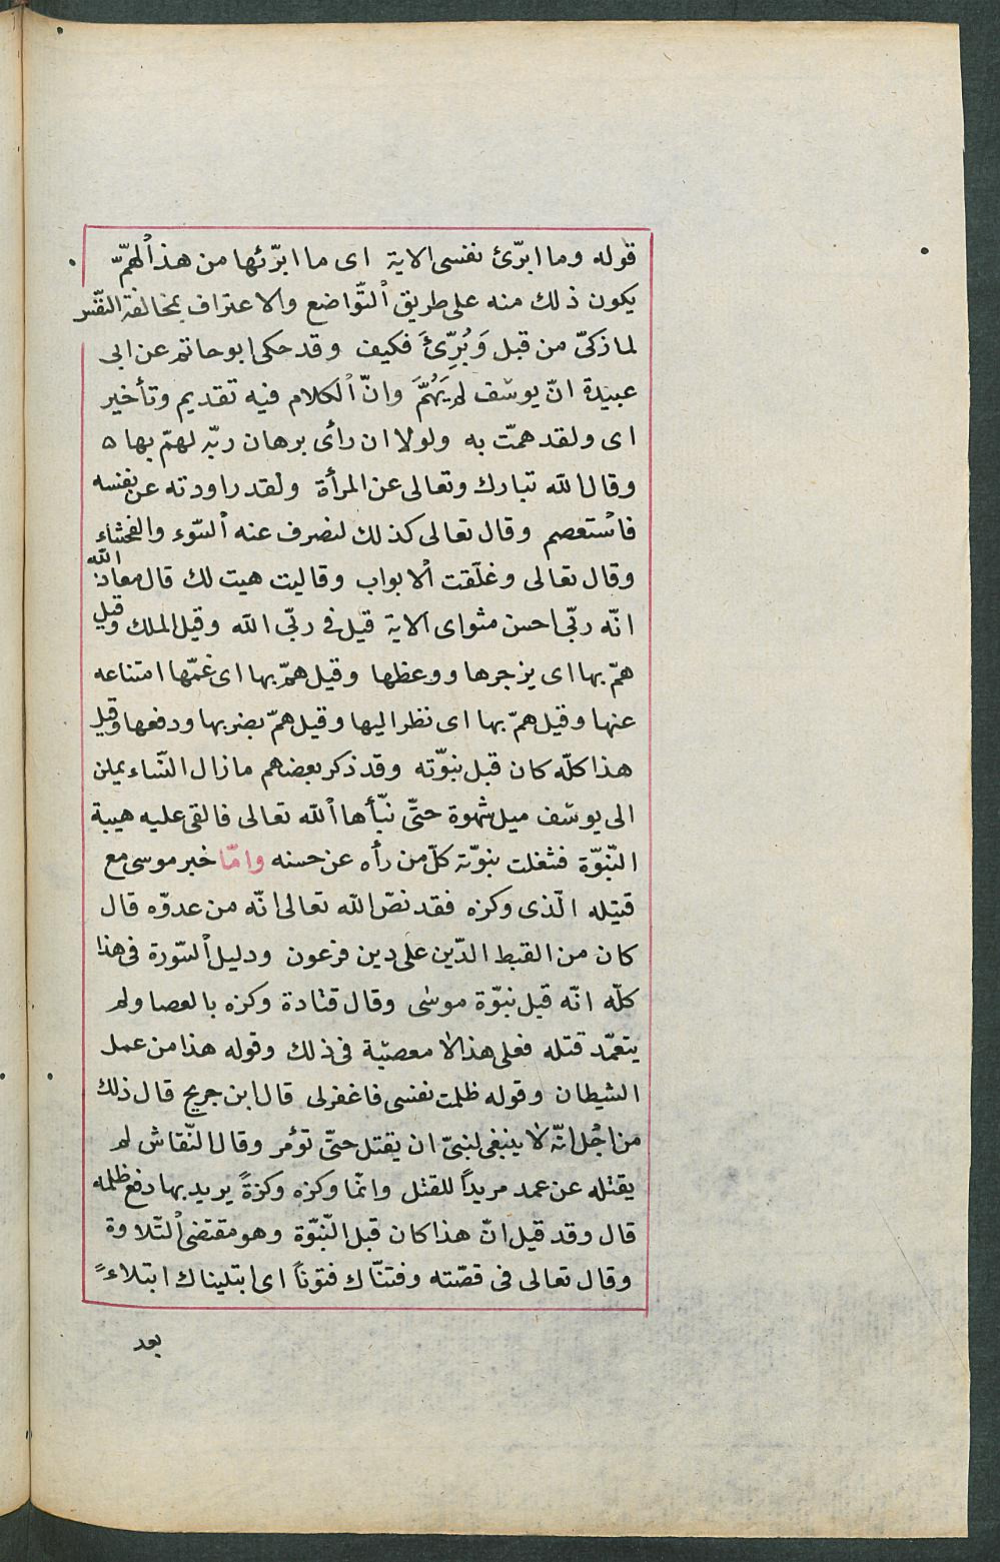 قوله وما ابرّئ نفسى الاية اى ما ابرّئها من هذا الهمّ
يكون ذلك منه على طريق التّواضع والاعتراف بمخالفة النّفس
لما زكىّ من قبل وَبُرِّئَ فكيف وقد حكى ابو حاتم عن ابى
عبيدة انّ يوسف لم يَهُمَّ وانّ الكلام فيه تقديم وتأخير
اى ولقد همّت به ولولا ان رأى برهان ربّه لهمّ بها ه
وقال الله تبارك وتعالى عن المرأة ولقد راودته عن نفسه
فاستعصم وقال تعالى كذلك لنصرف عنه السّوء والفحشاء
وقال تعالى وغلّقت الابواب وقاليت هيت لك قال معاذ الله
انّه ربّى احسن مثواى الاية قيل فى ربّى الله وقيل الملك وقيل
همّ بها اى يزجرها ووعظها وقيل همّ بها اى غمّها امتناعه
عنها وقيل همّ بها اى نظر اليها وقيل همّ بضربها ودفعها وقيل
هذا كلّه كان قبل نبوّته وقد ذكر بعضهم ما زال النّساء يملن
الى يوسف ميل شهوة حتّى نبّأها الله تعالى فالقى عليه هيبة
النّبوّة فشغلت بنوّته كلّ من رأه عن حسنه وامّا خبر موسى مع
قتيله الّذى وكزه فقد نصّ الله تعالى انّه من عدوّه قال
كان من القبط الذّين على دين فرعون ودليل السّورة فى هذا
كلّه انّه قبل نبوّة موسى وقال قتادة وكزه بالعصا ولم
يتعمّد قتله فعلى هذا لا معصيّة فى ذلك وقوله هذا من عمل
الشيطان وقوله ظلمت نفسى فاغفرلى قال ابن جريج قال ذلك
من اجل انّه لا ينبغى لنبىّ ان يقتل حتّى تؤمر وقال النّقاش لم
يقتله عن عمد مريداً للقتل وانّما وكزه وكزةً يريد بها دفع ظلمه
قال وقد قيل انّ هذا كان قبل النّبوّة وهو مقتضى التّلاوة
وقال تعالى فى قصّته وفتنّاك فتوناً اى ابتليناك ابتلاءً
بعد